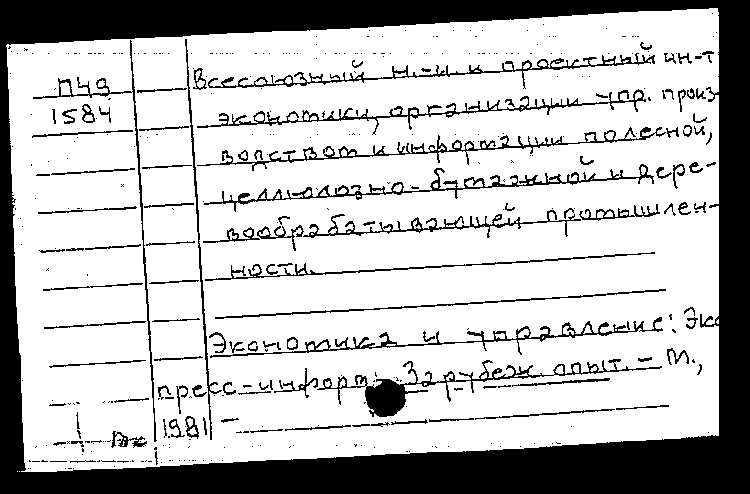 П49
1584
Всесоюзный н.-и. и проектный ин-т
экономики, организации упр. произ-
водством и информации по лесной,
целлюлозно-бумажной и дере-
вообрабатывающей промышлен-
ности.
Экономика и управление: Экс
пресс-информ. Зарубеж. опыт. – М.,
1981 –